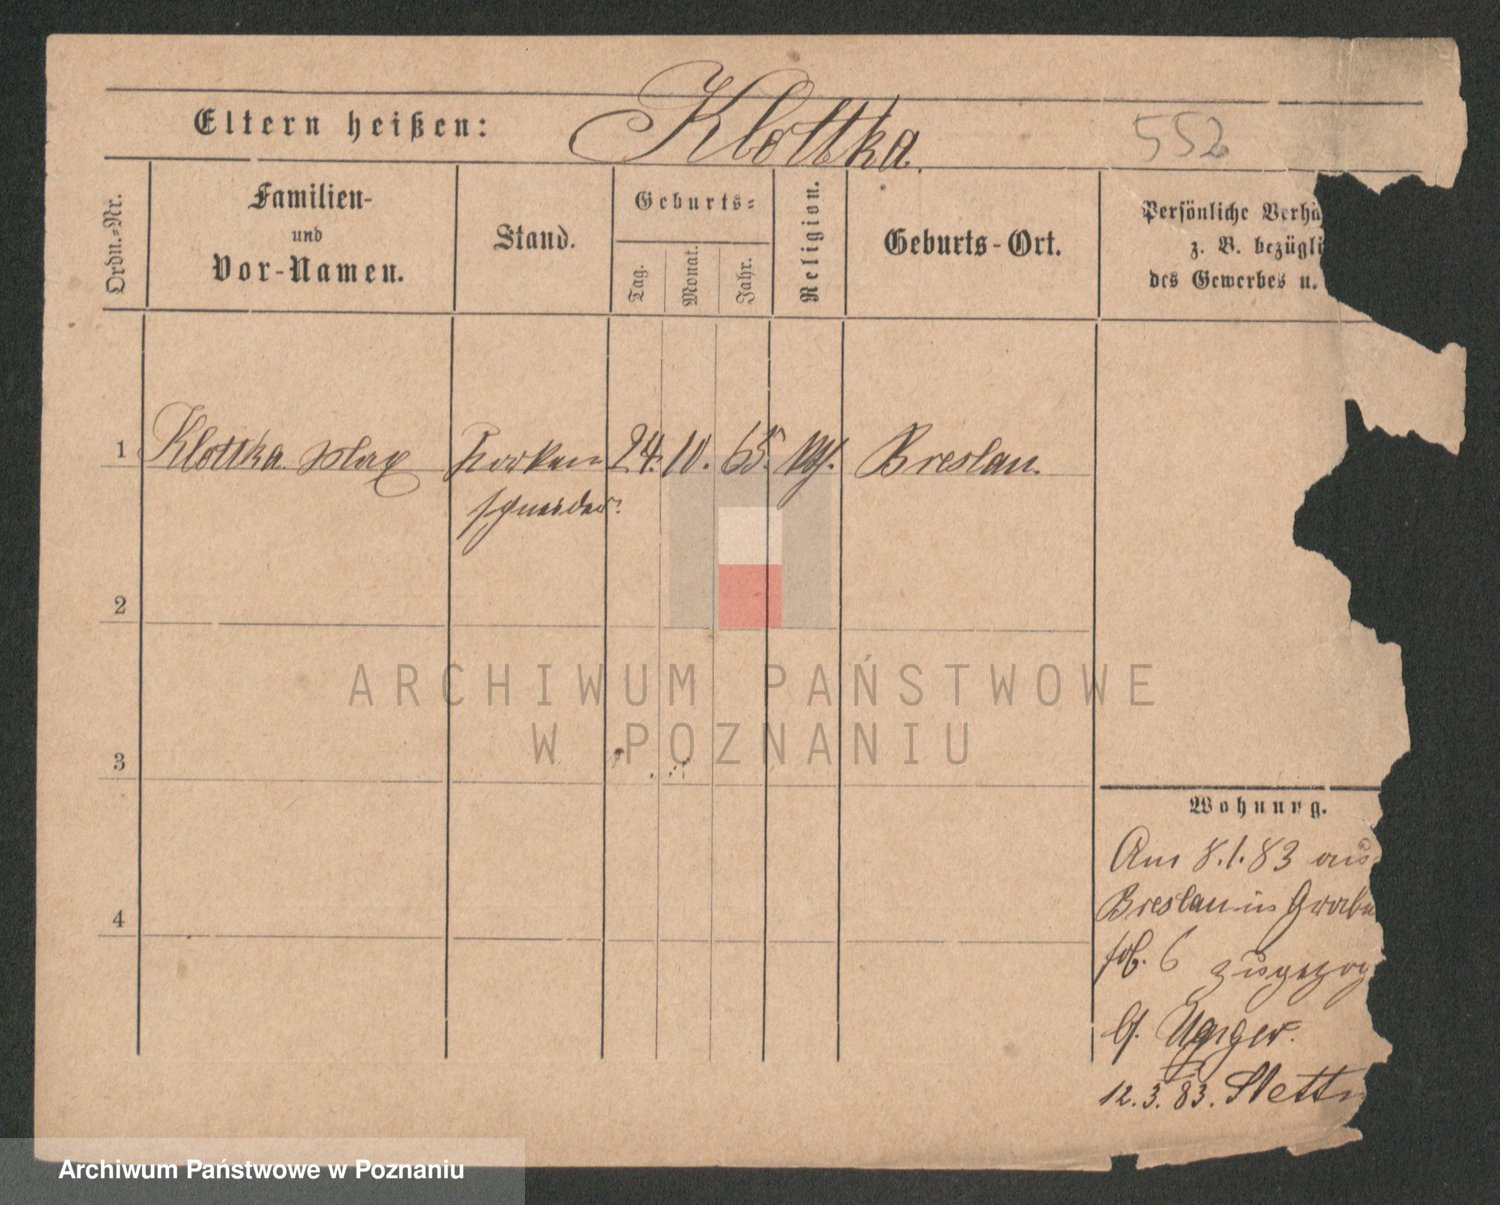 Eltern heißen: Klottka. 552
Ordn.-Nr.
Familien-
und
Vor-Namen.
Stand.
Geburts-
Tag.
Monat.
Jahr.
Religion.
Geburts-Ort.
Persönliche Verhä
z. B. bezügli
des Gewerbes u.
1 Klottka Max 24. 10. 65. Breslau.
schneider.
2
3
4
Wohnung.
Am 8.1.83 aus
Breslau in
6 zugezog
12.3.83. Stett
ARCHIWUM PAŃSTWOWE
W POZNANIU
Archiwum Państwowe w Poznaniu